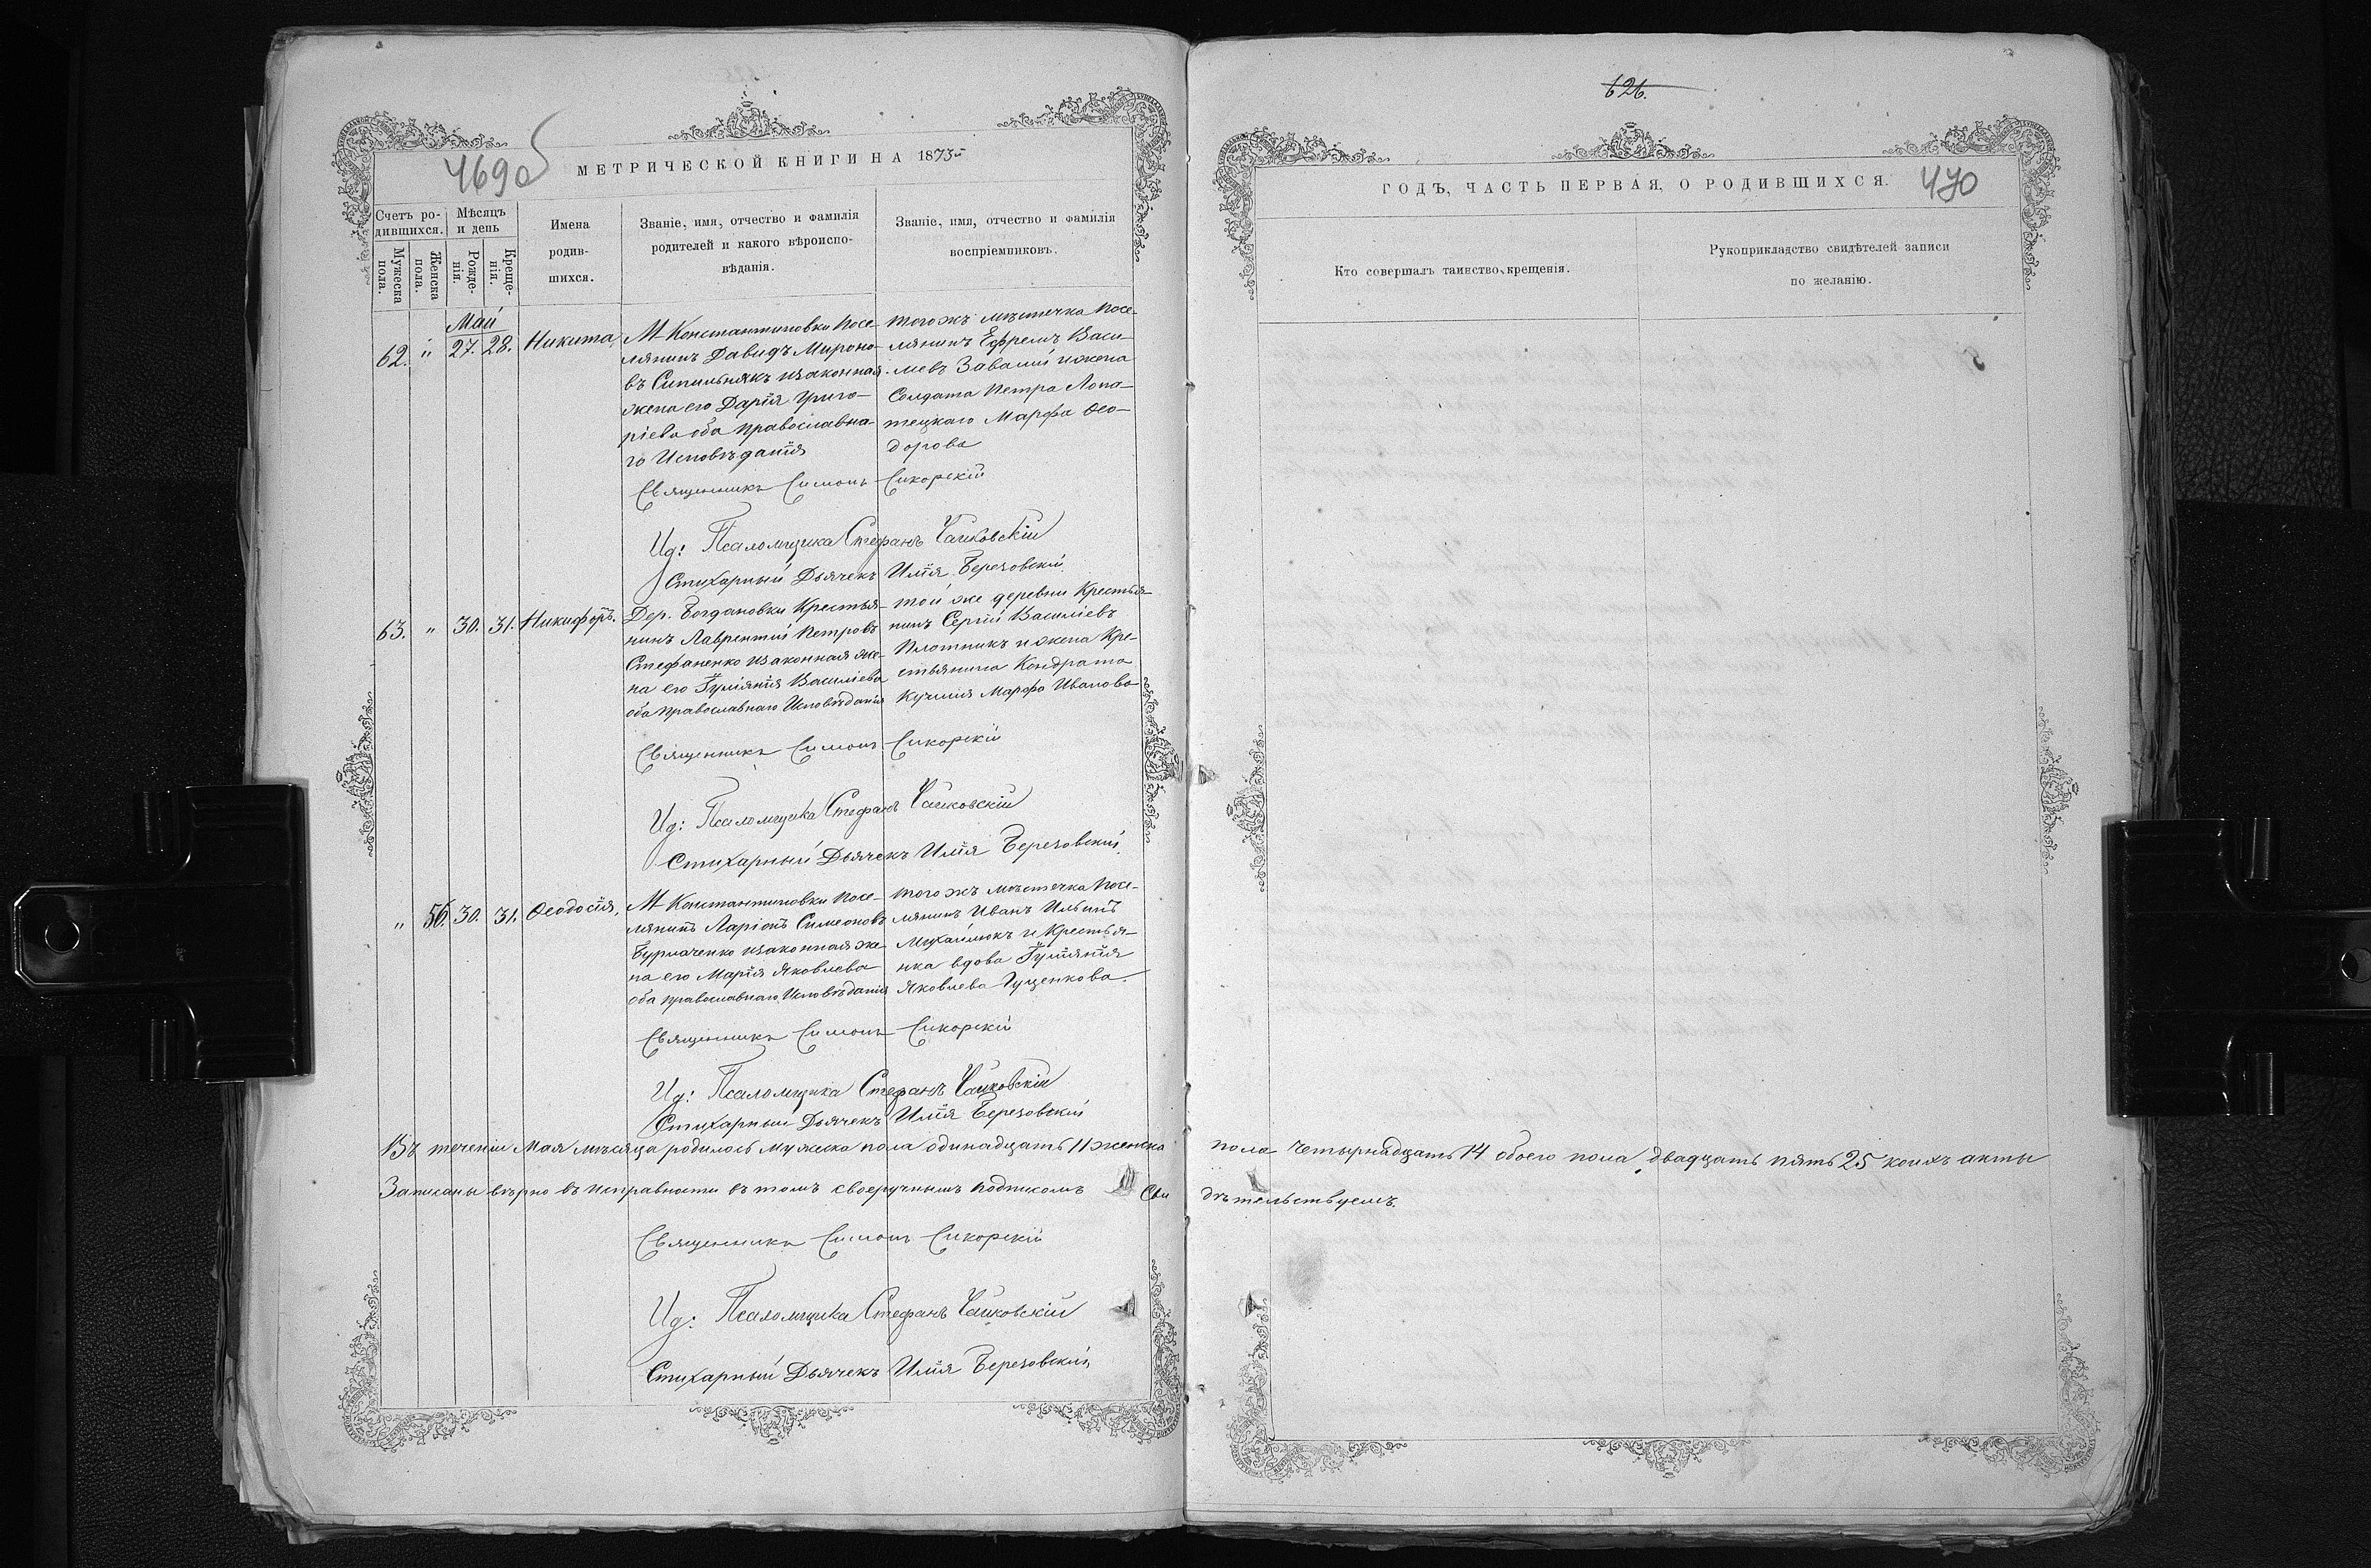 626.
469 об
МЕТРИЧЕСКОЙ КНИГИ НА 1875
ГОДЪ, ЧАСТЬ ПЕРВАЯ, О РОДИВШИХСЯ.
470
Счетъ ро-
дившихся.
Мужеска
пола.
Женска
пола.
Мѣсяцъ
и день
Рожде-
нія.
Креще-
нія.
Имена
родив-
шихся.
Званіе, имя, отчество и фамилія
родителей и какого вѣроиспо-
вѣданія.
Званіе, имя, отчество и фамилія
воспріемниковъ.
Кто совершалъ таинство крещенія.
Рукоприкладство свидѣтелей записи
по желанію.
Май
62. " 27. 28. Никита,
М Константиновки посе-
лянинъ Давидъ Мироно-
въ Сипильнякъ изаконная
жена его Дарія Григо-
ріева оба православна-
го Исповѣданія
того жъ мѣстечка посе-
лянинъ Ефремъ Васи-
лiевъ Завалій и жена
Солдата Петра Лопа-
тецкаго Марфа Ѳео-
дорова
Священникъ Симонъ Сикорскій
Ид: Псаломщика Стефанъ Чайковскій
Стихарный Дьячекъ Илія Березовскій
63. " 30. 31. Никифоръ.
Дер. Богдановки Крестья-
нинъ Лаврентій Петровъ
Стефаненко изаконная же-
на его Іуліянія Василіева
оба православнаго Исповѣданія
той же деревни Крестья-
нинъ Сергій Василіевъ
Плотникъ и жена Кре-
стьянина Кондрата
Кучмія Марфа Иванова
Священникъ Симонъ Сикорскій
Ид: Псаломщика Стефанъ Чайковскій
Стихарный Дьячекъ Илія Березовскій
" 56. 30. 31. Ѳеодосія,
М Константиновки посе-
лянинъ Ларіонъ Симеоновъ
Бурлаченко изаконная же-
на его Марія Яковлева
оба православнаго Исповѣданія
того жъ мѣстечка посе-
лянинъ Иванъ Ильинъ
Михайлюкъ и Крестья-
нка вдова Іуліянія
Яковлева Гуценкова.
Священникъ Симонъ Сикорскій
Ид: Псаломщика Стефанъ Чайковскій
Стихарный Дьячекъ Илія Березовскій
Въ теченіи Мая мѣсяца родилось мужеска пола одинадцать 11 женска пола четырнадцать 14 обоего пола двадцать пять 25 коихъ акты
Записаны вѣрно въ исправности въ томъ своеручнымъ подписомъ Сви дѣтельствуемъ.
Священникъ Симонъ Сикорскій
Ид: Псаломщика Стефанъ Чайковскій
Стихарный Дьячекъ Илія Березовскій